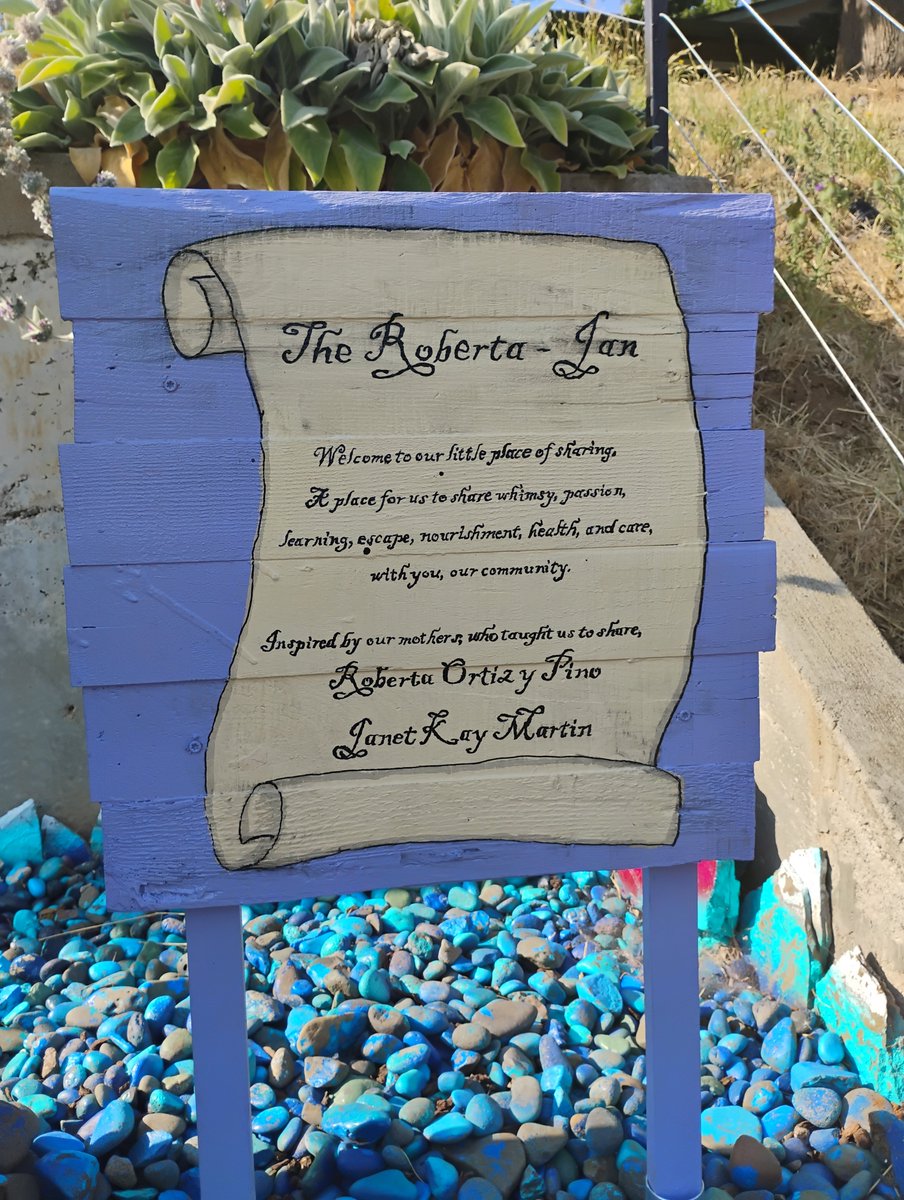 The Roberta - Jan
Welcome to our little place of sharing.
A place for us to share whimsy, passion,
learning, escape, nourishment, health, and care,
with you, our community.
Inspired by our mothers, who taught us to share,
Roberta Ortiz y Pino
Janet Kay Martin